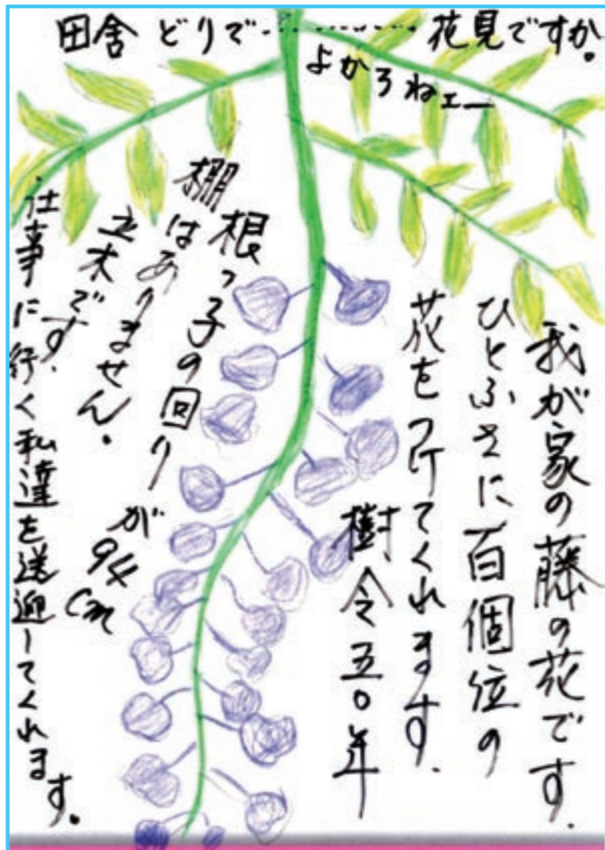 田舎どりで‥‥‥‥花見ですか。
よかろねェー
我が家の藤の花です.
ひとふさに百個位の
花をつけてくれます.
樹令五〇年
根っ子の回りが94cm
棚はありません.
立木です.
仕事に行く私達を送迎してくれます。